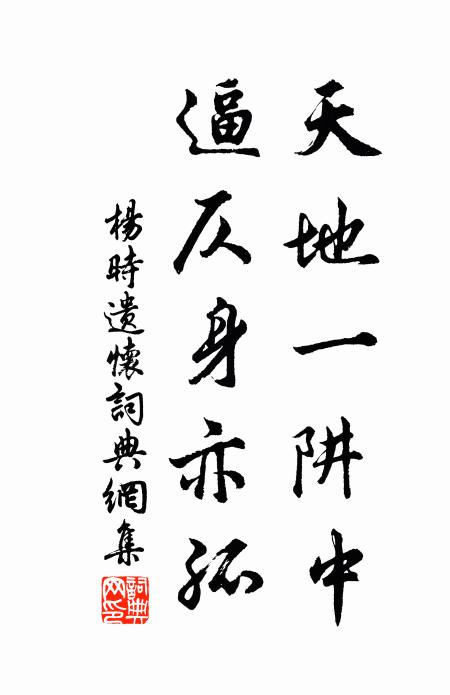 天地一阱中
逼仄身亦孤
楊時遺懷詞典網集
詞典
网印